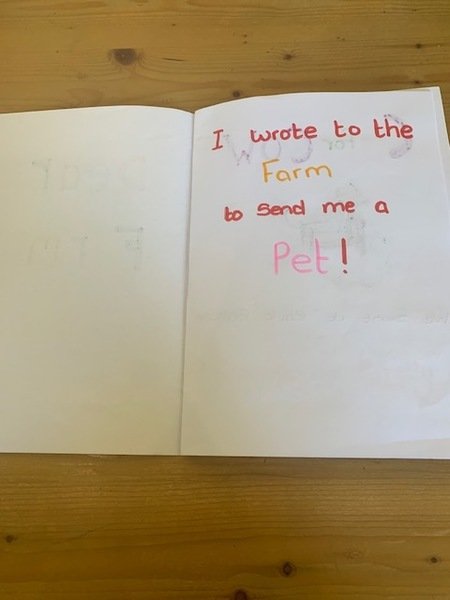 I wrote to the
Farm
to Send me a
Pet!